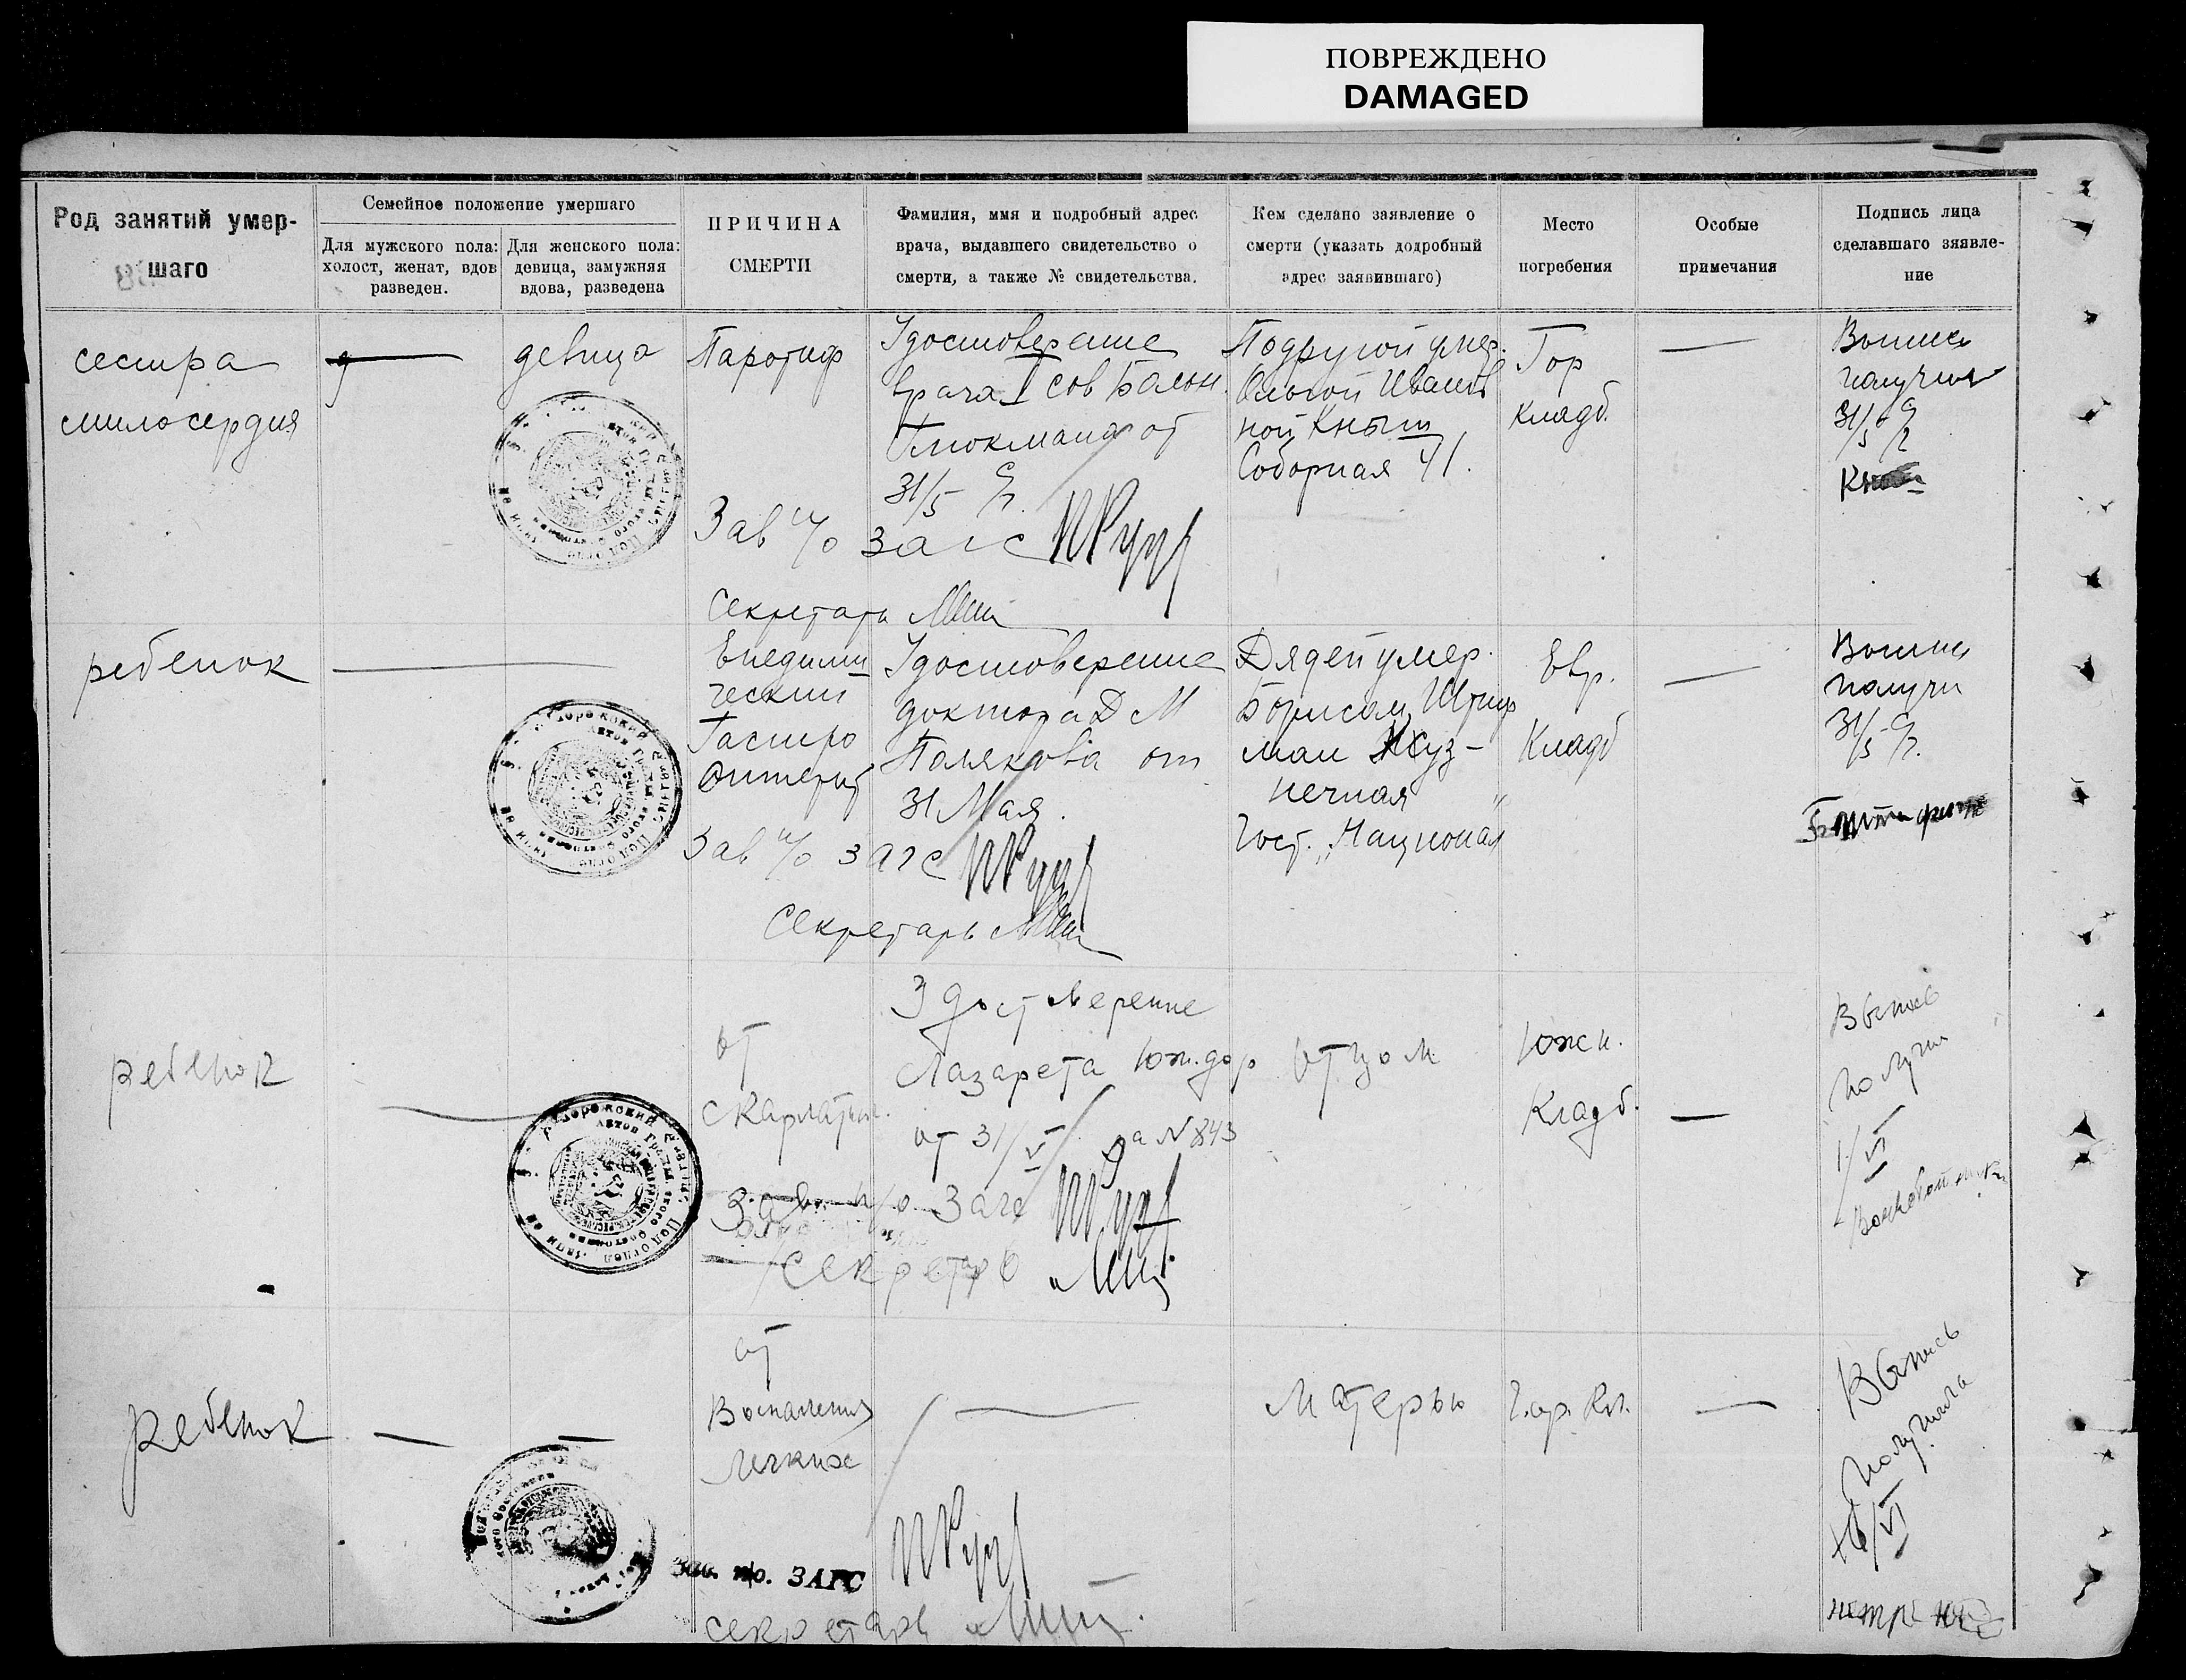 ПОВРЕЖДЕНО
DAMAGED
Род занятий умер-
шаго
Семейное положение умершаго
Для мужского пола:
холост, женат, вдов
разведен.
Для женского пола:
девица, замужняя
вдова, разведена
ПРИЧИНА
СМЕРТИ
Фамилия, имя и подробный адрес
врача, выдавшего свидетельство о
смерти, а также № свидетельства.
Кем сделано заявление о
смерти (указать додробный
адрес заявившаго)
Место
погребения
Особые
примечания
Подпись лица
сделавшаго зяявле-
ние
сестра
милосердия
девица
Паротиф
Удостоверение
врача I сов Больн.
от
31/5
Подругой умер.
Ольгой Иванов
ной Кныш
Соборная 41.
Гор
кладб.
Выпись
получил
31/5
Зав п/о загс
Секретарь
ребенок
Эпедими
ческий
Гастро
Энтерит
Удостоверение
доктора Д М
Полякова от
31 Мая.
Дядей умер.
Борисом Штир
ман Куз-
нечная
Гост. „Националь"
Евр.
Кладб
Выпись
получи
31/5
Зав п/о загс
Секретарь
ребенок
от
скарлатин.
Удостоверение
Лазарета Юж.дор
от 31/V за N 843
отцом
Южн.
Кладб.
Выпись
получил
1/VI
Зав. п/о Загс
Секретарь
ребенок
от
Воспаления
легких
матерью
Гор. Кл.
Выпись
получила
/VI
Зав. п/о. ЗАГС
секретарь